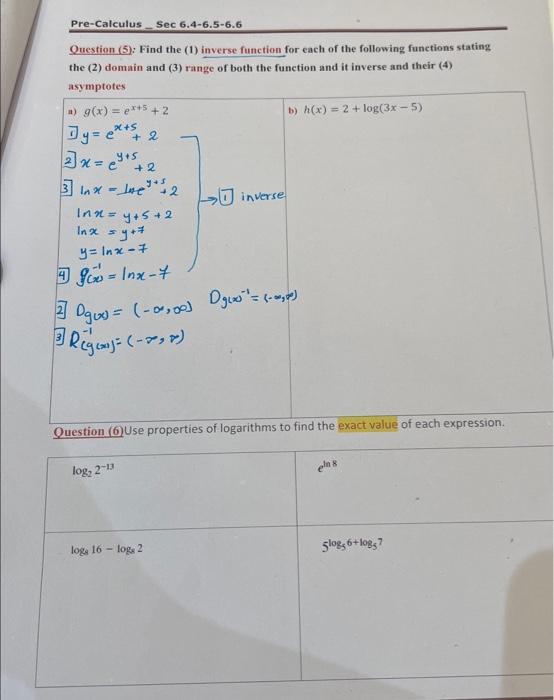 Pre-Calculus _ Sec 6.4-6.5-6.6
Question (5): Find the (1) inverse function for each of the following functions stating
the (2) domain and (3) range of both the function and it inverse and their (4)
asymptotes
a) g(x) = e^{x+5} + 2
b) h(x) = 2 + log(3x − 5)
1] y = e^{x+5} + 2
2] x = e^{y+5} + 2
3] ln x = ln e^{y+5} + 2
→ 1 inverse
ln x = y+5+2
ln x = y+7
y = ln x − 7
4] g^{-1}(x) = ln x − 7
2] D_{g(x)} = (-∞, ∞) D_{g(x)^{-1}} = (-∞, ∞)
3] R^{-1}_{(g(x))} = (-∞, ∞)
Question (6)Use properties of logarithms to find the exact value of each expression.
log₂ 2^{−13}
e^{ln 8}
log₈ 16 − log₈ 2
5^{log₅ 6+log₅ 7}